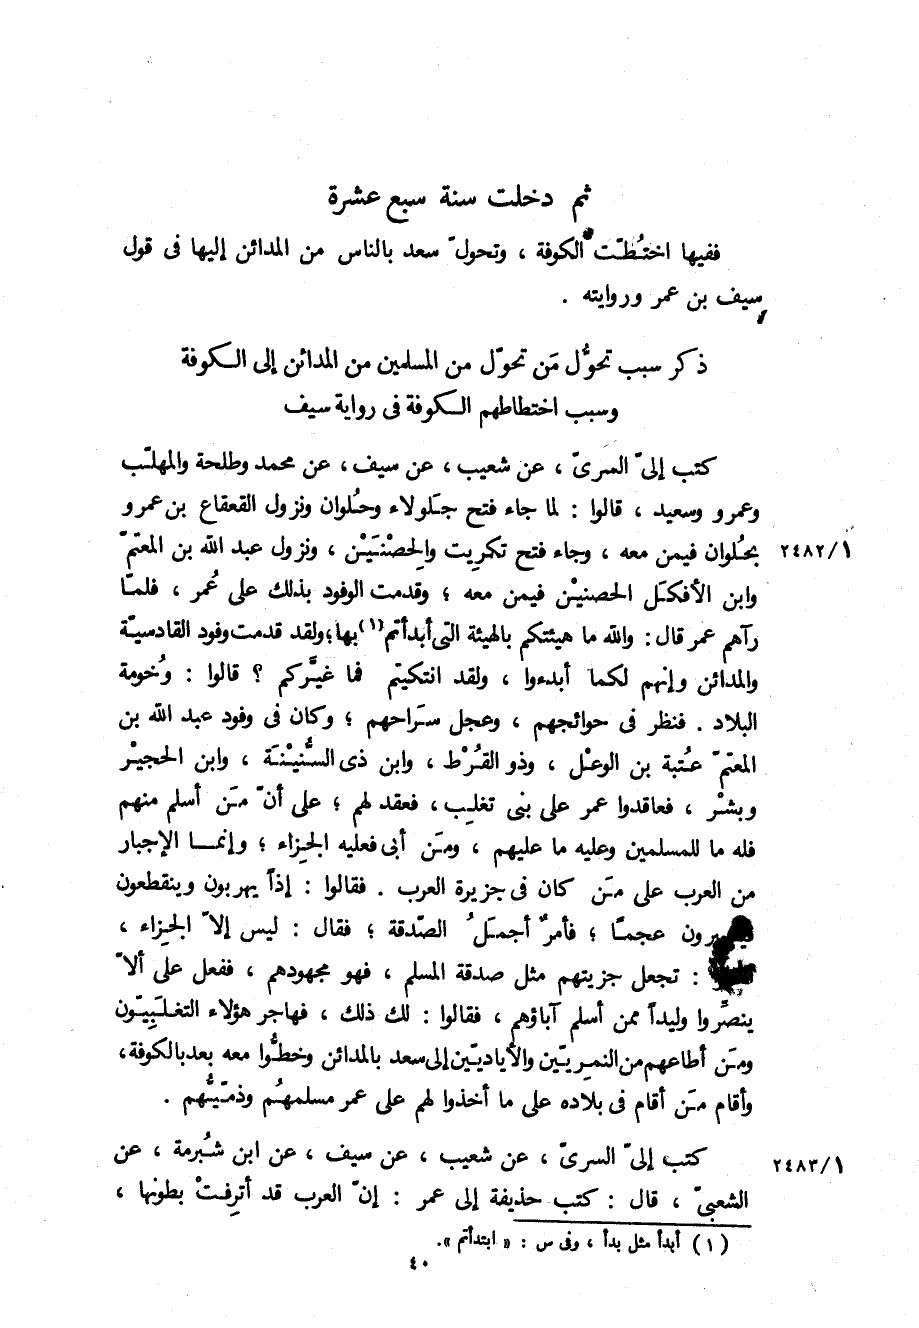 ثم دخلت سنة سبع عشرة
ففيها اختُطّت الكوفة ، وتحولّ سعد بالناس من المدائن إليها فى قول
سيف بن عمر وروايته .
ذكر سبب تحوُّل مَن تحوّل من المسلمين من المدائن إلى الكوفة
وسبب اختطاطهم الكوفة فى رواية سيف
كتب إلىّ السرىّ ، عن شعيب ، عن سيف ، عن محمد وطلحة والمهلّب
وعمرو وسعيد ، قالوا : لما جاء فتح جَلولاء وحُلوان ونزول القعقاع بن عمرو
بحُلوان فيمن معه ، وجاء فتح تكريت والحِصْنَيْن ، ونزول عبد الله بن المعتمّ ٢٤٨٢/١
وابن الأفكَل الحصنيْن فيمن معه ؛ وقدمت الوفود بذلك على عُمر ، فلمّا
رآهم عمر قال : والله ما هيئتكم بالهيئة التى أبدأتم (١) بها ؛ ولقد قدمت وفود القادسيّة
والمدائن وإنهم لكما أبدءوا ، ولقد انتكيتم فما غيَّركم ؟ قالوا : وُخومة
البلاد . فنظر فى حوائجهم ، وعجل سَراحهم ؛ وكان فى وفود عبد الله بن
المعتمّ عُتبة بن الوعْل ، وذو القُرْط ، وابن ذى السُّنيْنَة ، وابن الحجيْر
وبشْر ، فعاقدوا عمر على بنى تغلِب ، فعقد لهم ؛ على أنّ مَن أسلم منهم
فله ما للمسلمين وعليه ما عليهم ، ومَن أبى فعليه الجِزاء ؛ وإنما الإجبار
من العرب على مَن كان فى جزيرة العرب . فقالوا : إذاً يهربون وينقطعون
فيصيرون عجمًا ؛ فأمرٌ أجمَلُ الصّدقة ؛ فقال : ليس إلاّ الجِزاء ،
: تجعل جزيتهم مثل صدقة المسلم ، فهو مجهودهم ، ففعل على ألاّ
ينصِّروا وليداً ممن أسلم آباؤهم ، فقالوا : لك ذلك ، فهاجر هؤلاء التغلَبِيّون
ومَن أطاعهم من النمريّين والأياديّين إلى سعد بالمدائن وخطُّوا معه بعد بالكوفة ،
وأقام مَن أقام فى بلاده على ما أخذوا لهم على عمر مسلمهُم وذمّيُّهم .
كتب إلىّ السرىّ ، عن شعيب ، عن سيف ، عن ابن شُبرمة ، عن ٢٤٨٣/١
الشعبىّ ، قال : كتب حذيفة إلى عمر : إنّ العرب قد أترِفتْ بطونها ،
(١) أبدأ مثل بدأ ، وفى س : « ابتدأتم ».
٤٠